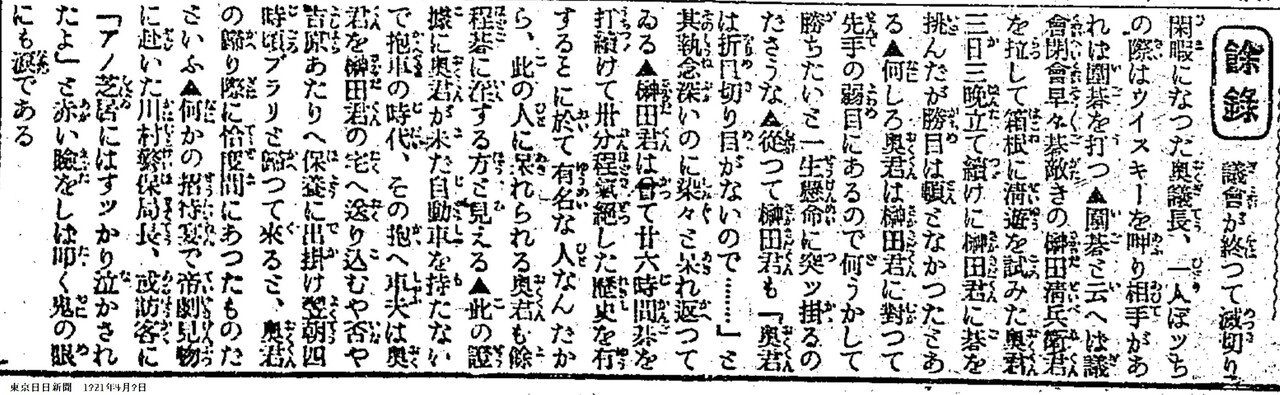 餘錄
議會が終つて滅切り
閑暇になつた奥議長、一人ぼッち
の際はウイスキーを呷り相手があ
れは圍碁を打つ▲圍碁と云へは議
會閉會早々碁敵きの榊田淸兵衛君
を拉して箱根に淸遊を試みた奥君
三日三晩立て續けに榊田君に碁を
挑んだが勝目は頓となかつたとあ
る▲何しろ奥君は榊田君に對つて
先手の弱目にあるので何うかして
勝ちたいと一生懸命に突ッ掛るの
ださうな▲從つて榊田君も「奥君
は折目切り目がないので……」と
其執念深いのに染々と呆れ返つて
ゐる▲榊田君は曾て廿六時間碁を
打ち續けて卅分程氣絕した歷史を有
することに於て有名な人なんだか
ら、此の人に呆れられる奥君も餘
程碁に淫する方と見える▲此の證
據に奥君が未た自動車を持たない
で抱車の時代、その抱へ車夫は奥
君を榊田君の宅へ送り込むや否や
吉原あたりへ保養に出掛け翌朝四
時頃ブラリと歸つて來ると、奥君
の歸り際に恰度間にあつたものだ
といふ▲何かの招待宴で帝劇見物
に赴いた川村警保局長、或訪客に
「アノ芝居にはすッかり泣かされ
たよ」と赤い瞼をしは叩く鬼の眼
にも淚である
東京日日新聞　1921年4月9日